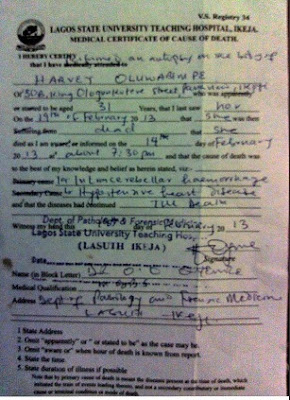 V.S. Registry 34
LAGOS STATE UNIVERSITY TEACHING HOSPITAL, IKEJA.
MEDICAL CERTIFICATE OF CAUSE OF DEATH.
I HEREBY CERTIFY performed an autopsy on the body of
that I have medically attended to
HARVEY
Of 30B, King street,
or stated to be aged 31 Years, that I last saw her
On the 19th of February 20 13 that she was then
Suffering from dead that she
died as I am aware/or informed on the 14th day of February
20 13 at about 7:30 pm and that the cause of death was
to the best of my knowledge and belief as herein stated, viz:-
Primary cause Intracerebellar haemorrhage
Secondary Cause Hypertensive heart disease
and that the diseases had continued Till death
Dept. of Pathology & Forensic Medicine
Witness my hand this day of February 20 13
Lagos State University Teaching Hosp
(LASUTH IKEJA)
Date
Signature
Name (in Block Letter) DR O.O
Medical Qualification
Address Dept of and Forensic Medicine
LASUTH Ikeja
1 State Address
2. Omit "apparently" or " or stated to be" as the case may be.
3. Omit "aware or" when hour of death is known from report.
4. State the time.
5. State duration of illness if possible
Note that by primary cause of death is meant the diseases present at the time of death, which
initiated the train of events leading thereto, and not a secondary contributory or immediate
cause or terminal condition or mode of death.